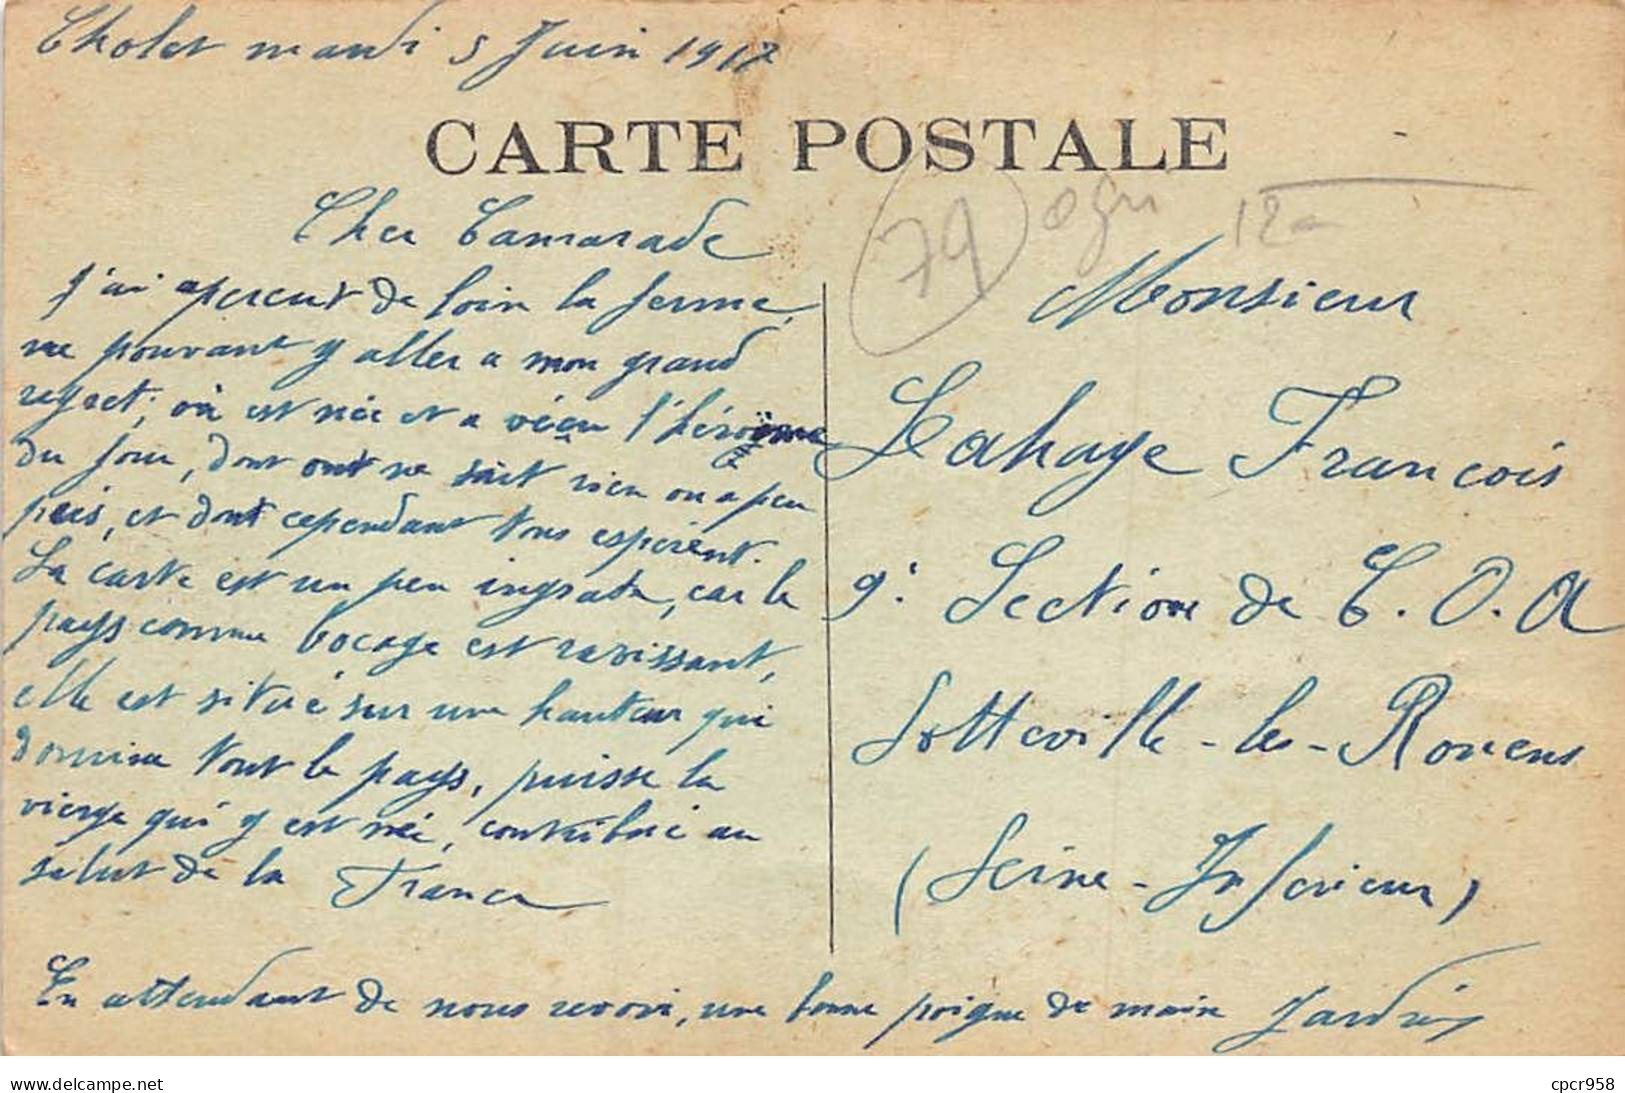 Cholet mardi 5 Juin 1917
CARTE POSTALE
79
12
Cher Camarade
J'ai apercut de loin la ferme,
ne pouvant y aller a mon grand
regret, où est née et a vécu l'héroïne
du jour, dont ont ne sait rien ou a peu
près, et dont cependant tous espèrent.
La carte est un peu ingrate, car le
pays comme bocage est ravissant,
elle est situé sur une hauteur qui
domine tout le pays, puisse la
vierge qui y est née, contribué au
salut de la France
En attendant de nous revoir, une bonne poigne de main
Monsieur
Lahaye François
9e Section de C.O.A
Sotteville-les-Rouens
(Seine-Inferieur)
cpcr958
www.delcampe.net